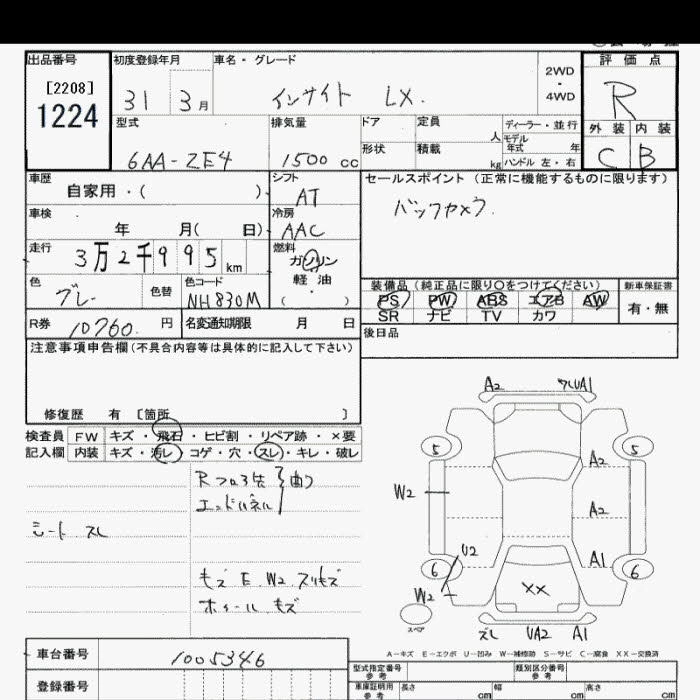 出品番号
[2208]
1224
初度登録年月
31 3月
車名・グレード
インサイト LX.
2WD
・
4WD
評価点
R
外装 内装
C B
型式
6AA-ZE4
排気量
1500 cc
ドア
定員
人
形状
積載
kg
ディーラー・並行
モデル
年式 年
ハンドル 左・右
車歴
自家用・( )
シフト
AT
セールスポイント (正常に機能するものに限ります)
バックカメラ.
車検
年 月( 日)
冷房
AAC
走行
3万2千995km
燃料
ガソリン
軽油
( ・ )
色
グレー
色替
色コード
NH830M
装備品 (純正品に限り○をつけてください)
PS PW ABS エアB AW
SR ナビ TV カワ
新車保証書
有・無
R券
10760.円
名変通知期限 月 日
後日品
注意事項申告欄(不具合内容等は具体的に記入して下さい)
修復歴 有 [箇所 ]
検査員
記入欄
FW キズ・飛石・ヒビ割・リペア跡・×要
内装 キズ・汚レ・コゲ・穴・スレ・キレ・破レ
Rフロア先
エンドパネル
曲
シート スレ
キズ E W2 スリキズ
ホイール キズ
A2
ズレUA1
5
5
A2
W2
A2
U2
A1
6
6
W2
XX
スペア
ズレ UA2 A1
A-キズ E-エクボ U-凹み W-補修跡 S-サビ C-腐食 XX-交換済
車台番号
1005346
登録番号
型式指定番号
参考
類別区分番号
参考
車庫証明用
参考
長さ cm
幅 cm
高さ cm